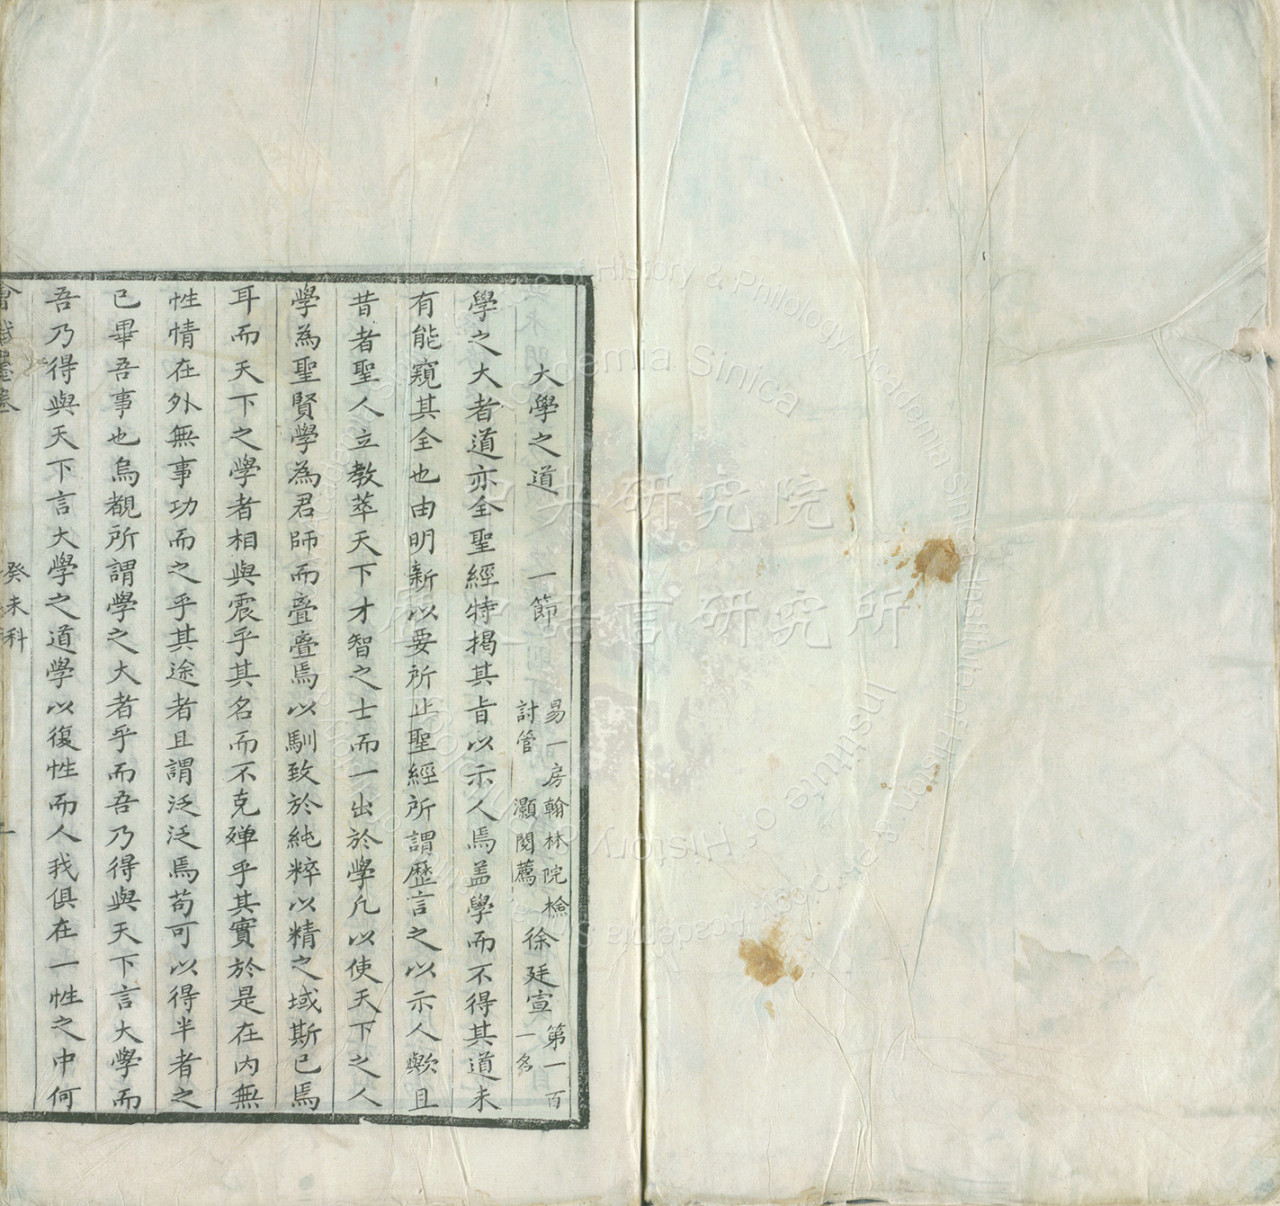 大學之道 一節 易一房翰林院檢討管 灝閱薦 徐廷宣 第一百一名
學之大者道亦全聖經特揭其旨以示人焉盖學而不得其道未
有能窺其全也由明新以要所止聖經所謂歷言之以示人歟且
昔者聖人立教萃天下才智之士而一出於學凡以使天下之人
學為聖賢學為君師而亹亹焉以馴致於純粹以精之域斯已焉
耳而天下之學者相與震乎其名而不克殫乎其實於是在內無
性情在外無事功而之乎其途者且謂泛泛焉苟可以得半者之
已畢吾事也烏覩所謂學之大者乎而吾乃得與天下言大學而
吾乃得與天下言大學之道學以復性而人我俱在一性之中何
會試墨卷 癸未科 一
中央研究院
歷史語言研究所
Institute of History & Philology Academia Sinica